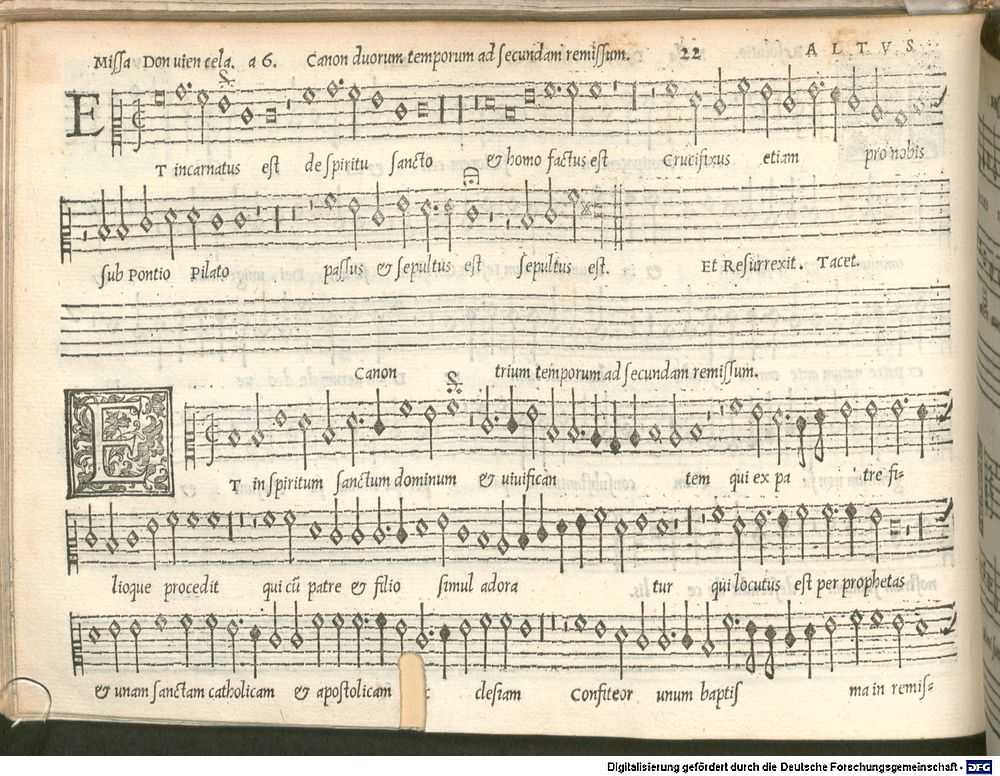 Missa Don uien cela. a 6. Canon duorum temporum ad secundam remissum. 22 ALTVS
ET incarnatus est de spiritu sancto & homo factus est Crucifixus etiam pro nobis
sub Pontio Pilato passus & sepultus est sepultus est. Et Resurrexit. Tacet.
Canon trium temporum ad secundam remissum.
ET in spiritum sanctum dominum & uiuifican tem qui ex pa tre fi-
lioque procedit qui cū patre & filio simul adora tur qui locutus est per prophetas
& unam sanctam catholicam & apostolicam clesiam Confiteor unum baptis ma in remis-
Digitalisierung gefördert durch die Deutsche Forschungsgemeinschaft - DFG